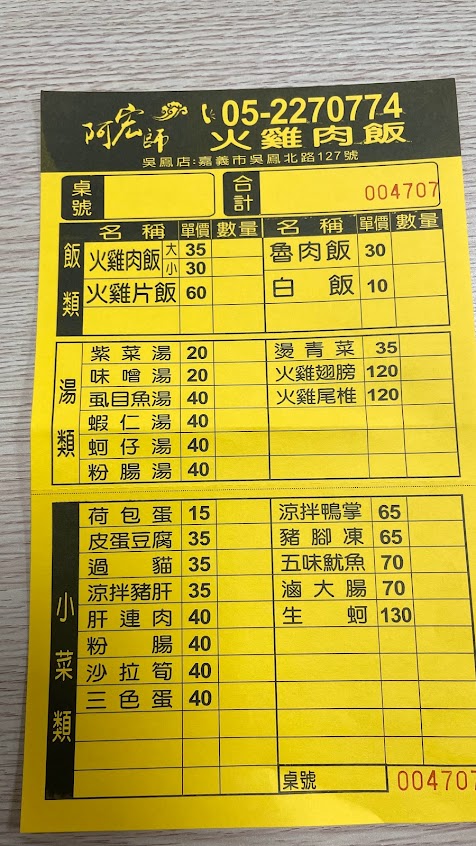 阿宏師
05-2270774
火雞肉飯
吳鳳店:嘉義市吳鳳北路127號
桌號
合計
004707
飯類
名稱 單價 數量 名稱 單價 數量
火雞肉飯 大 35 魯肉飯 30
小 30
火雞片飯 60 白飯 10
湯類
紫菜湯 20 燙青菜 35
味噌湯 20 火雞翅膀 120
虱目魚湯 40 火雞尾椎 120
蝦仁湯 40
蚵仔湯 40
粉腸湯 40
小菜類
荷包蛋 15 涼拌鴨掌 65
皮蛋豆腐 35 豬腳凍 65
過貓 35 五味魷魚 70
涼拌豬肝 35 滷大腸 70
肝連肉 40 生蚵 130
粉腸 40
沙拉筍 40
三色蛋 40
桌號
004707